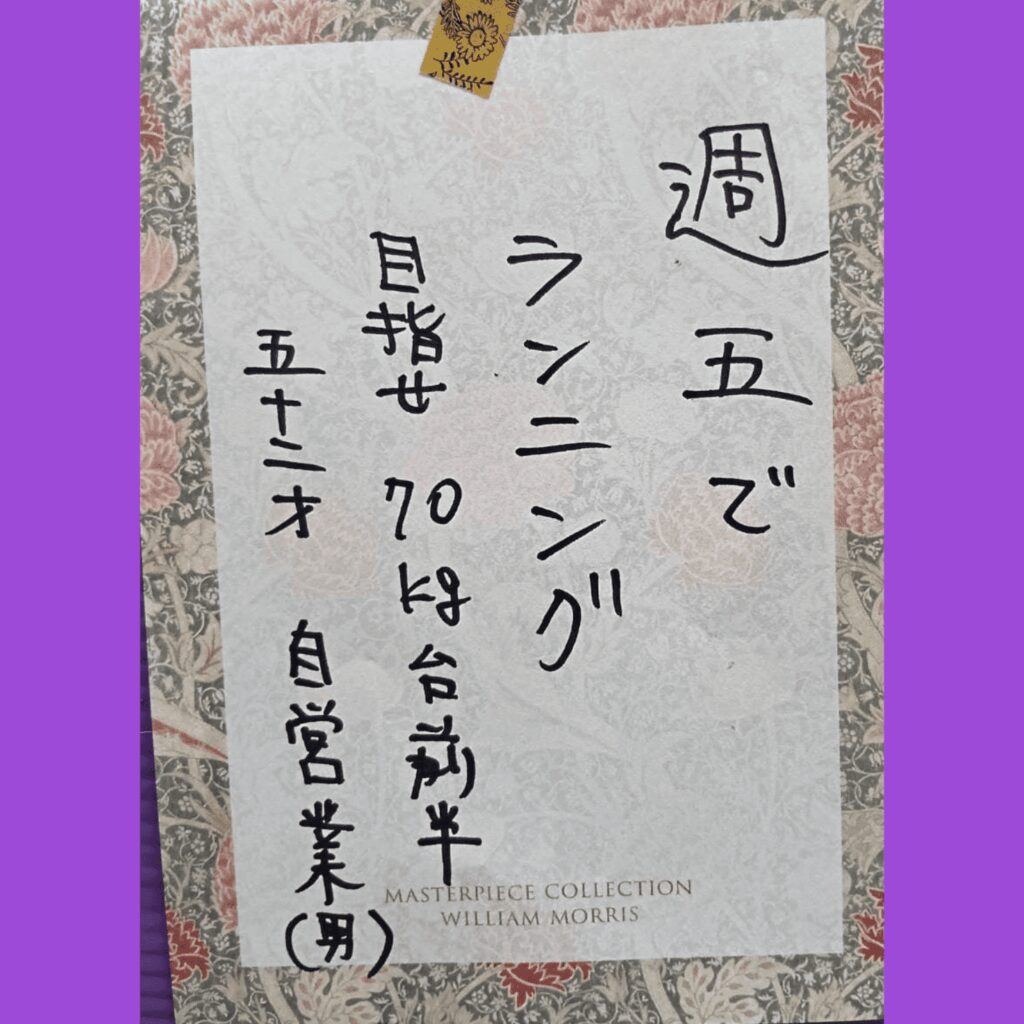 週五で
ランニング
目指せ 70kg台前半
五十二才 自営業(男)
MASTERPIECE COLLECTION
WILLIAM MORRIS